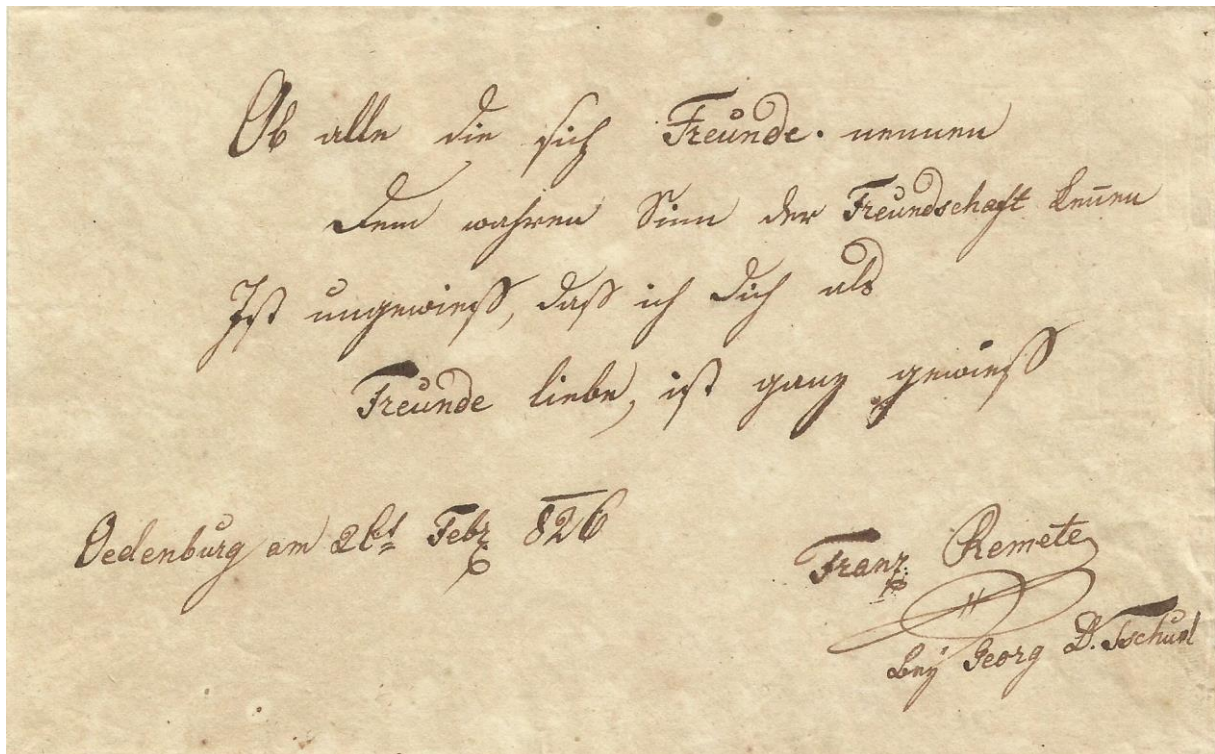 Ob alle die sich Freunde. nennen
Dem wahren Sinn der Freundschaft keñen
Ist ungewieß, daß ich dich als
Freunde liebe, ist ganz gewieß
Oedenburg am 26t Febr 826
Franz Remete
bey Georg D. Tschurl